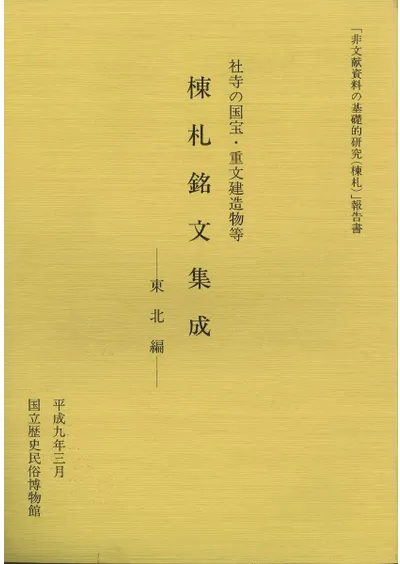 「非文献資料の基礎的研究(棟札)」報告書
社寺の国宝・重文建造物等
棟札銘文集成
―東北編―
平成九年三月
国立歴史民俗博物館